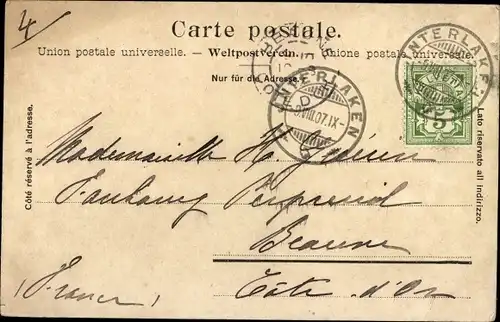 4
Carte postale.
Union postale universelle. – Weltpostverein. – Unione postale universale.
Nur für die Adresse.
Côté réservé à l'adresse.
Lato riservato all indirizzo.
INTERLAKEN
VIII.07.IX-
INTERLAKEN
VIII.07
5
Mademoiselle H.
Faubourg
Beaune
Côte d'Or
(France)